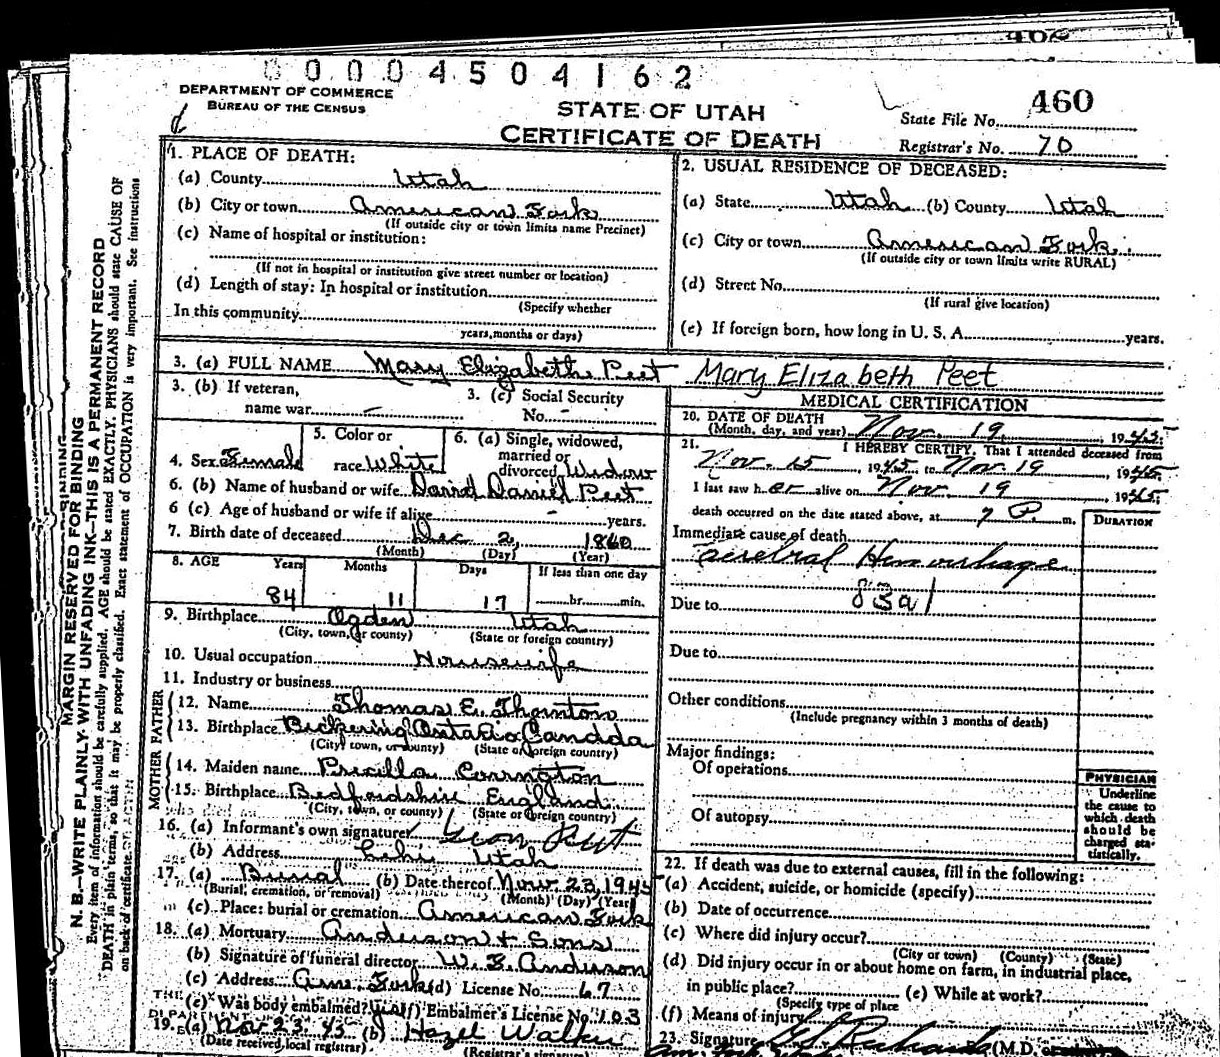 0 0 0 0 4 5 0 4 1 6 2
DEPARTMENT OF COMMERCE
BUREAU OF THE CENSUS
STATE OF UTAH
CERTIFICATE OF DEATH
State File No. 460
Registrar's No. 70
MARGIN RESERVED FOR BINDING
N. B.—WRITE PLAINLY WITH UNFADING INK—THIS IS A PERMANENT RECORD
Every item of information should be carefully supplied. AGE should be stated EXACTLY. PHYSICIANS should state CAUSE OF
DEATH in plain terms, so that it may be properly classified. Exact statement of OCCUPATION is very important. See instructions
on back of certificate.
1. PLACE OF DEATH:
(a) County Utah
(b) City or town American Fork
(If outside city or town limits name Precinct)
(c) Name of hospital or institution:
(If not in hospital or institution give street number or location)
(d) Length of stay: In hospital or institution
(Specify whether
In this community
years, months or days)
2. USUAL RESIDENCE OF DECEASED:
(a) State Utah (b) County Utah
(c) City or town American Fork
(If outside city or town limits write RURAL)
(d) Street No.
(If rural give location)
(e) If foreign born, how long in U. S. A. years.
3. (a) FULL NAME Mary Elizabeth Peet Mary Elizabeth Peet
3. (b) If veteran,
name war –
3. (c) Social Security
No. –
4. Sex Female
5. Color or
race White
6. (a) Single, widowed,
married or
divorced Widow
6. (b) Name of husband or wife David Daniel Peet
6 (c) Age of husband or wife if alive – years.
7. Birth date of deceased Dec 2, 1860
(Month) (Day) (Year)
8. AGE Years Months Days If less than one day
84 11 17 hr. min.
9. Birthplace Ogden Utah
(City, town, or county) (State or foreign country)
10. Usual occupation Housewife
11. Industry or business
FATHER
12. Name Thomas E. Thornton
13. Birthplace Pickering Ontario Canada
(City, town, or county) (State or foreign country)
MOTHER
14. Maiden name Pricilla Covington
15. Birthplace Bedfordshire England
(City, town, or county) (State or foreign country)
16. (a) Informant's own signature Leon Peet
(b) Address Lehi Utah
17. (a) Burial (b) Date thereof Nov 23, 1945
(Burial, cremation, or removal) (Month) (Day) (Year)
(c) Place: burial or cremation American Fork
18. (a) Mortuary Anderson & Sons
(b) Signature of funeral director W. E. Anderson
(c) Address Ame. Fork (d) License No. 67
(e) Was body embalmed? yes (f) Embalmer's License No. 103
19. (a) Nov 23 45 (b) Hazel Walker
(Date received local registrar) (Registrar's signature)
MEDICAL CERTIFICATION
20. DATE OF DEATH
(Month, day, and year) Nov. 19, 1945.
21. I HEREBY CERTIFY, That I attended deceased from
Nov. 15, 1945 to Nov 19 1945.
I last saw her alive on Nov. 19, 1945.
death occurred on the date stated above, at 7 P. m.
DURATION
Immediate cause of death
Cerebral Hemorrhage
Due to 83a1
Due to
Other conditions
(Include pregnancy within 3 months of death)
Major findings:
Of operations
Of autopsy
PHYSICIAN
Underline
the cause to
which death
should be
charged sta-
tistically.
22. If death was due to external causes, fill in the following:
(a) Accident, suicide, or homicide (specify)
(b) Date of occurrence
(c) Where did injury occur?
(City or town) (County) (State)
(d) Did injury occur in or about home on farm, in industrial place,
in public place? (e) While at work?
(Specify type of place
(f) Means of injury
23. Signature Richards (M.D.